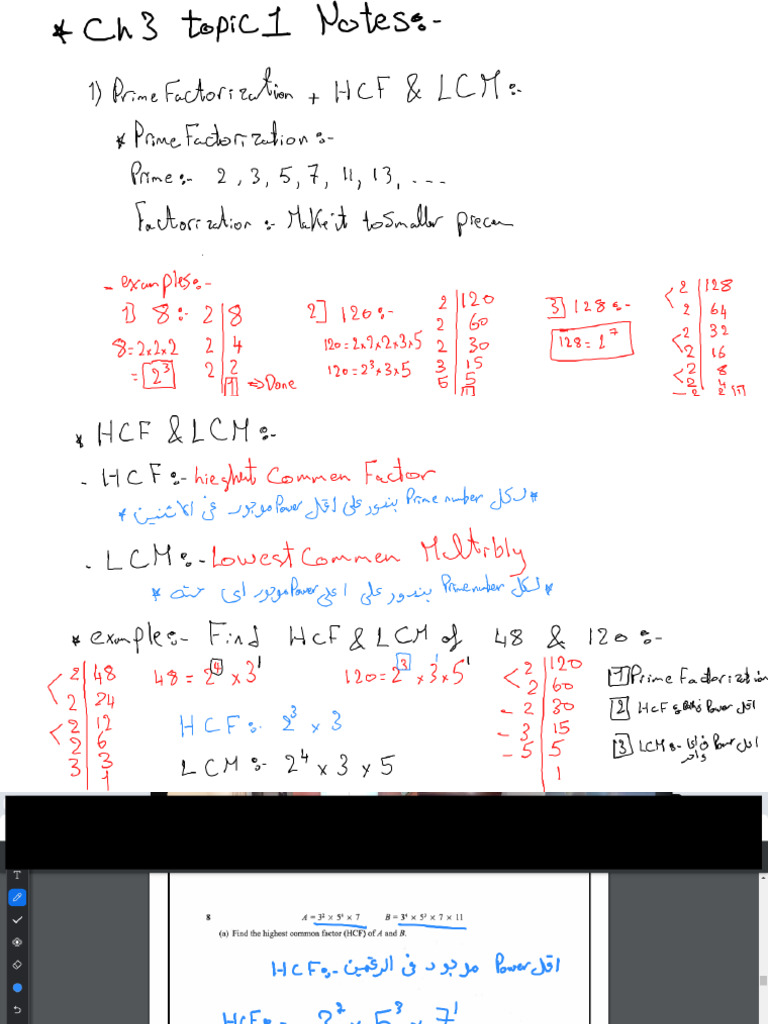 * Ch3 topic 1 Notes:-
1) Prime Factorization + HCF & LCM:-
* Prime Factorization:-
Prime:- 2, 3, 5, 7, 11, 13, ...
Factorization:- Make it to smaller
- examples:-
1) 8:- 2 | 8
8=2×2×2 2 | 4
= 2³ 2 | 2
1 ⇒ Done
2] 120:- 2 | 120
2 | 60
120=2×2×2×3×5 2 | 30
120=2³×3×5 3 | 15
5 | 5
1
3 128:- 2 | 128
128=2⁷ 2 | 64
2 | 32
2 | 16
2 | 8
2 | 4
2 1
* HCF & LCM:-
- HCF:- hieghest Commen Factor
* لكل Prime number بندور على اقل Power موجود فى الاثنين *
- LCM:- Lowest Commen Multibly
* لكل Prime number بندور على اعلى Power موجود اى حته *
* example:- Find HCF & LCM of 48 & 120:-
2 | 48 48 = 2⁴ × 3¹ 120 = 2³ × 3¹ × 5¹ 2 | 120
2 | 24 2 | 60
2 | 12 2 | 30
2 | 6 3 | 15
3 | 3 5 | 5
1 1
1 Prime Factorization
2 HCF اقل Power
3 LCM:- Power
HCF:- 2³ × 3
LCM:- 2⁴ × 3 × 5
T
8 A = 3² × 5⁴ × 7 B = 3⁴ × 5³ × 7 × 11
(a) Find the highest common factor (HCF) of A and B.
HCF:- اقل Power موجود فى الرقمين
HCF:- 3² × 5³ × 7¹